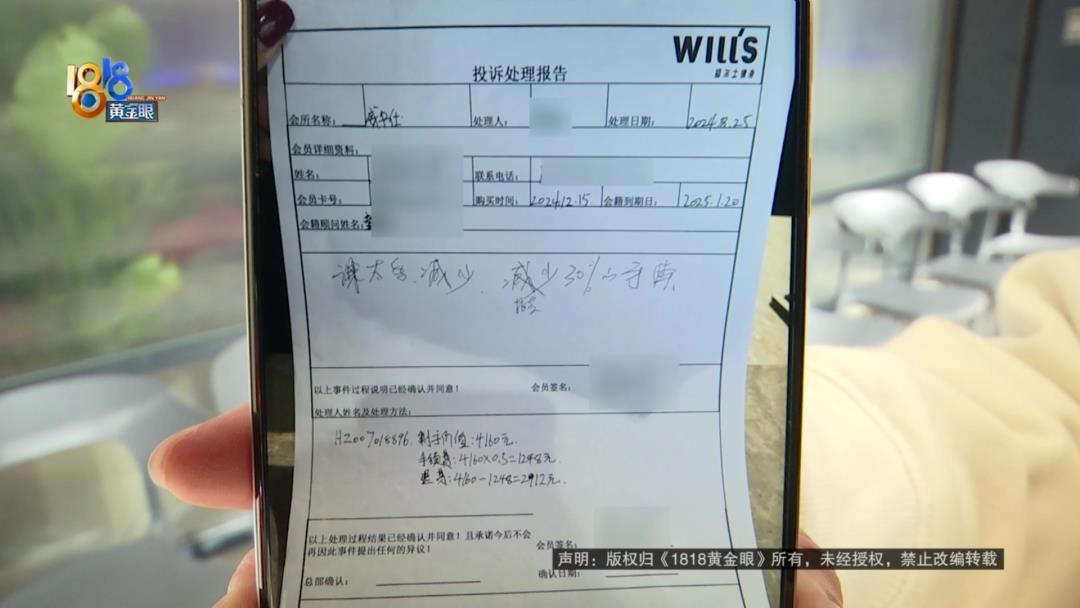 1818
HUANG JIN YAN
黄金眼
WILL'S
威尔士健身
投诉处理报告
会所名称: 处理人: 处理日期: 2024.8.25
会员详细资料:
姓名: 联系电话:
会员卡号: 购买时间: 2024.12.15 会籍到期日: 2025.1.20
会籍顾问姓名:
课太多.减少. 减少30%的手续
以上事件过程说明已经确认并同意! 会员签名:
处理人姓名及处理方法:
HZ007018896. 剩余价值:4160元.
手续费:4160×0.3=1248元.
退费:4160-1248=2912元.
以上处理过程结果已经确认并同意!且承诺今后不会
再因此事件提出任何的异议! 会员签名:
总部确认: 确认日期:
声明:版权归《1818黄金眼》所有,未经授权,禁止改编转载